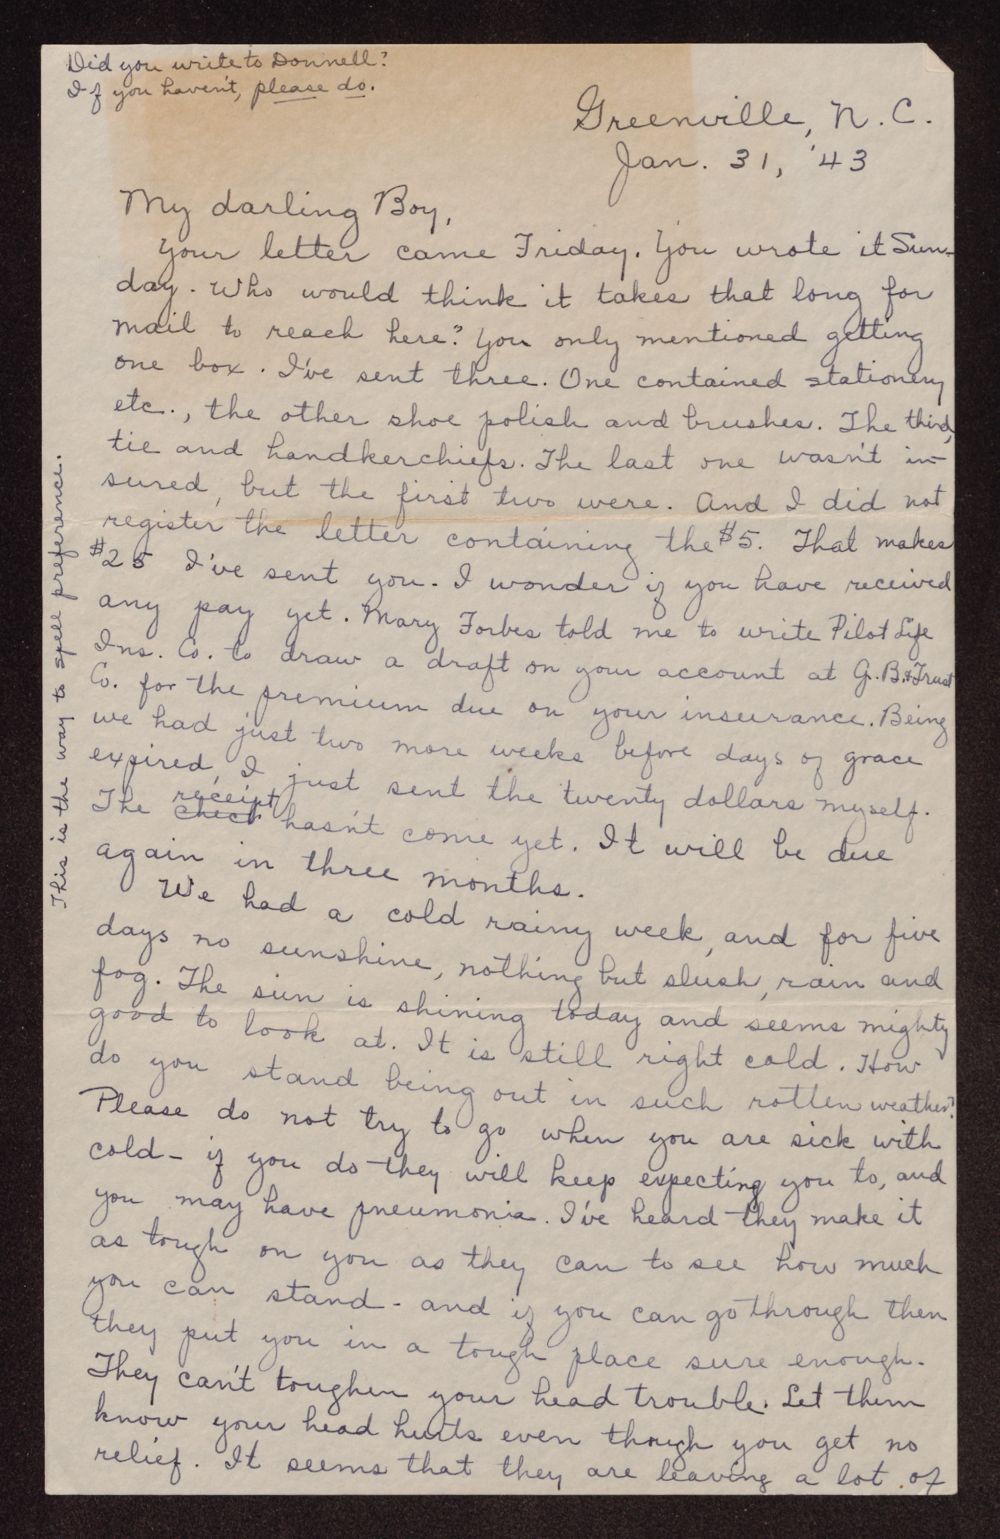 Did you write to Donnell?
If you haven't, please do.
Greenville, N. C.
Jan. 31, '43
My darling Boy,
Your letter came Friday. You wrote it Sun-
day. Who would think it takes that long for
mail to reach here? You only mentioned getting
one box. I've sent three. One contained stationery
etc., the other shoe polish and brushes. The third,
tie and handkerchiefs. The last one wasn't in-
sured, but the first two were. And I did not
register the letter containing the $5. That makes
$25 I've sent you. I wonder if you have received
any pay yet. Mary Forbes told me to write Pilot Life
Ins. Co. to draw a draft on your account at G. B. & Trust
Co. for the premium due on your insurance. Being
we had just two more weeks before days of grace
expired, I just sent the twenty dollars myself.
The check receipt hasn't come yet. It will be due
again in three months.
We had a cold rainy week, and for five
days no sunshine, nothing but slush, rain and
fog. The sun is shining today and seems mighty
good to look at. It is still right cold. How
do you stand being out in such rotten weather?
Please do not try to go when you are sick with
cold - if you do they will keep expecting you to, and
you may have pneumonia. I've heard they make it
as tough on you as they can to see how much
you can stand - and if you can go through then
they put you in a tough place sure enough.
They can't toughen your head trouble. Let them
know your head hurts even though you get no
relief. It seems that they are leaving a lot of
This is the way to spell preference.